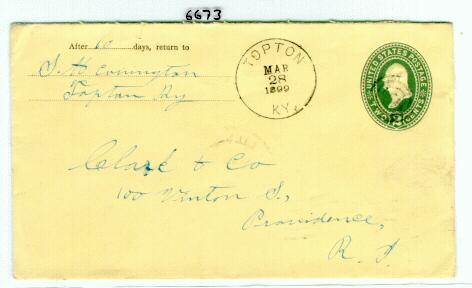 6673
After 10 days, return to
S. H. Conington
Topton Ky
TOPTON
MAR
28
1899
KY.
UNITED STATES POSTAGE
TWO CENTS
2
Clark & Co
100 Vinton S.,
Providence,
R. I.